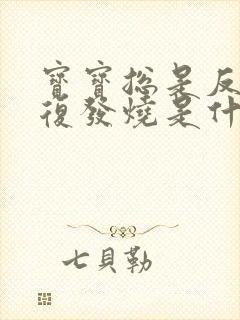 寶寶總是反
復發燒是什
七貝勒